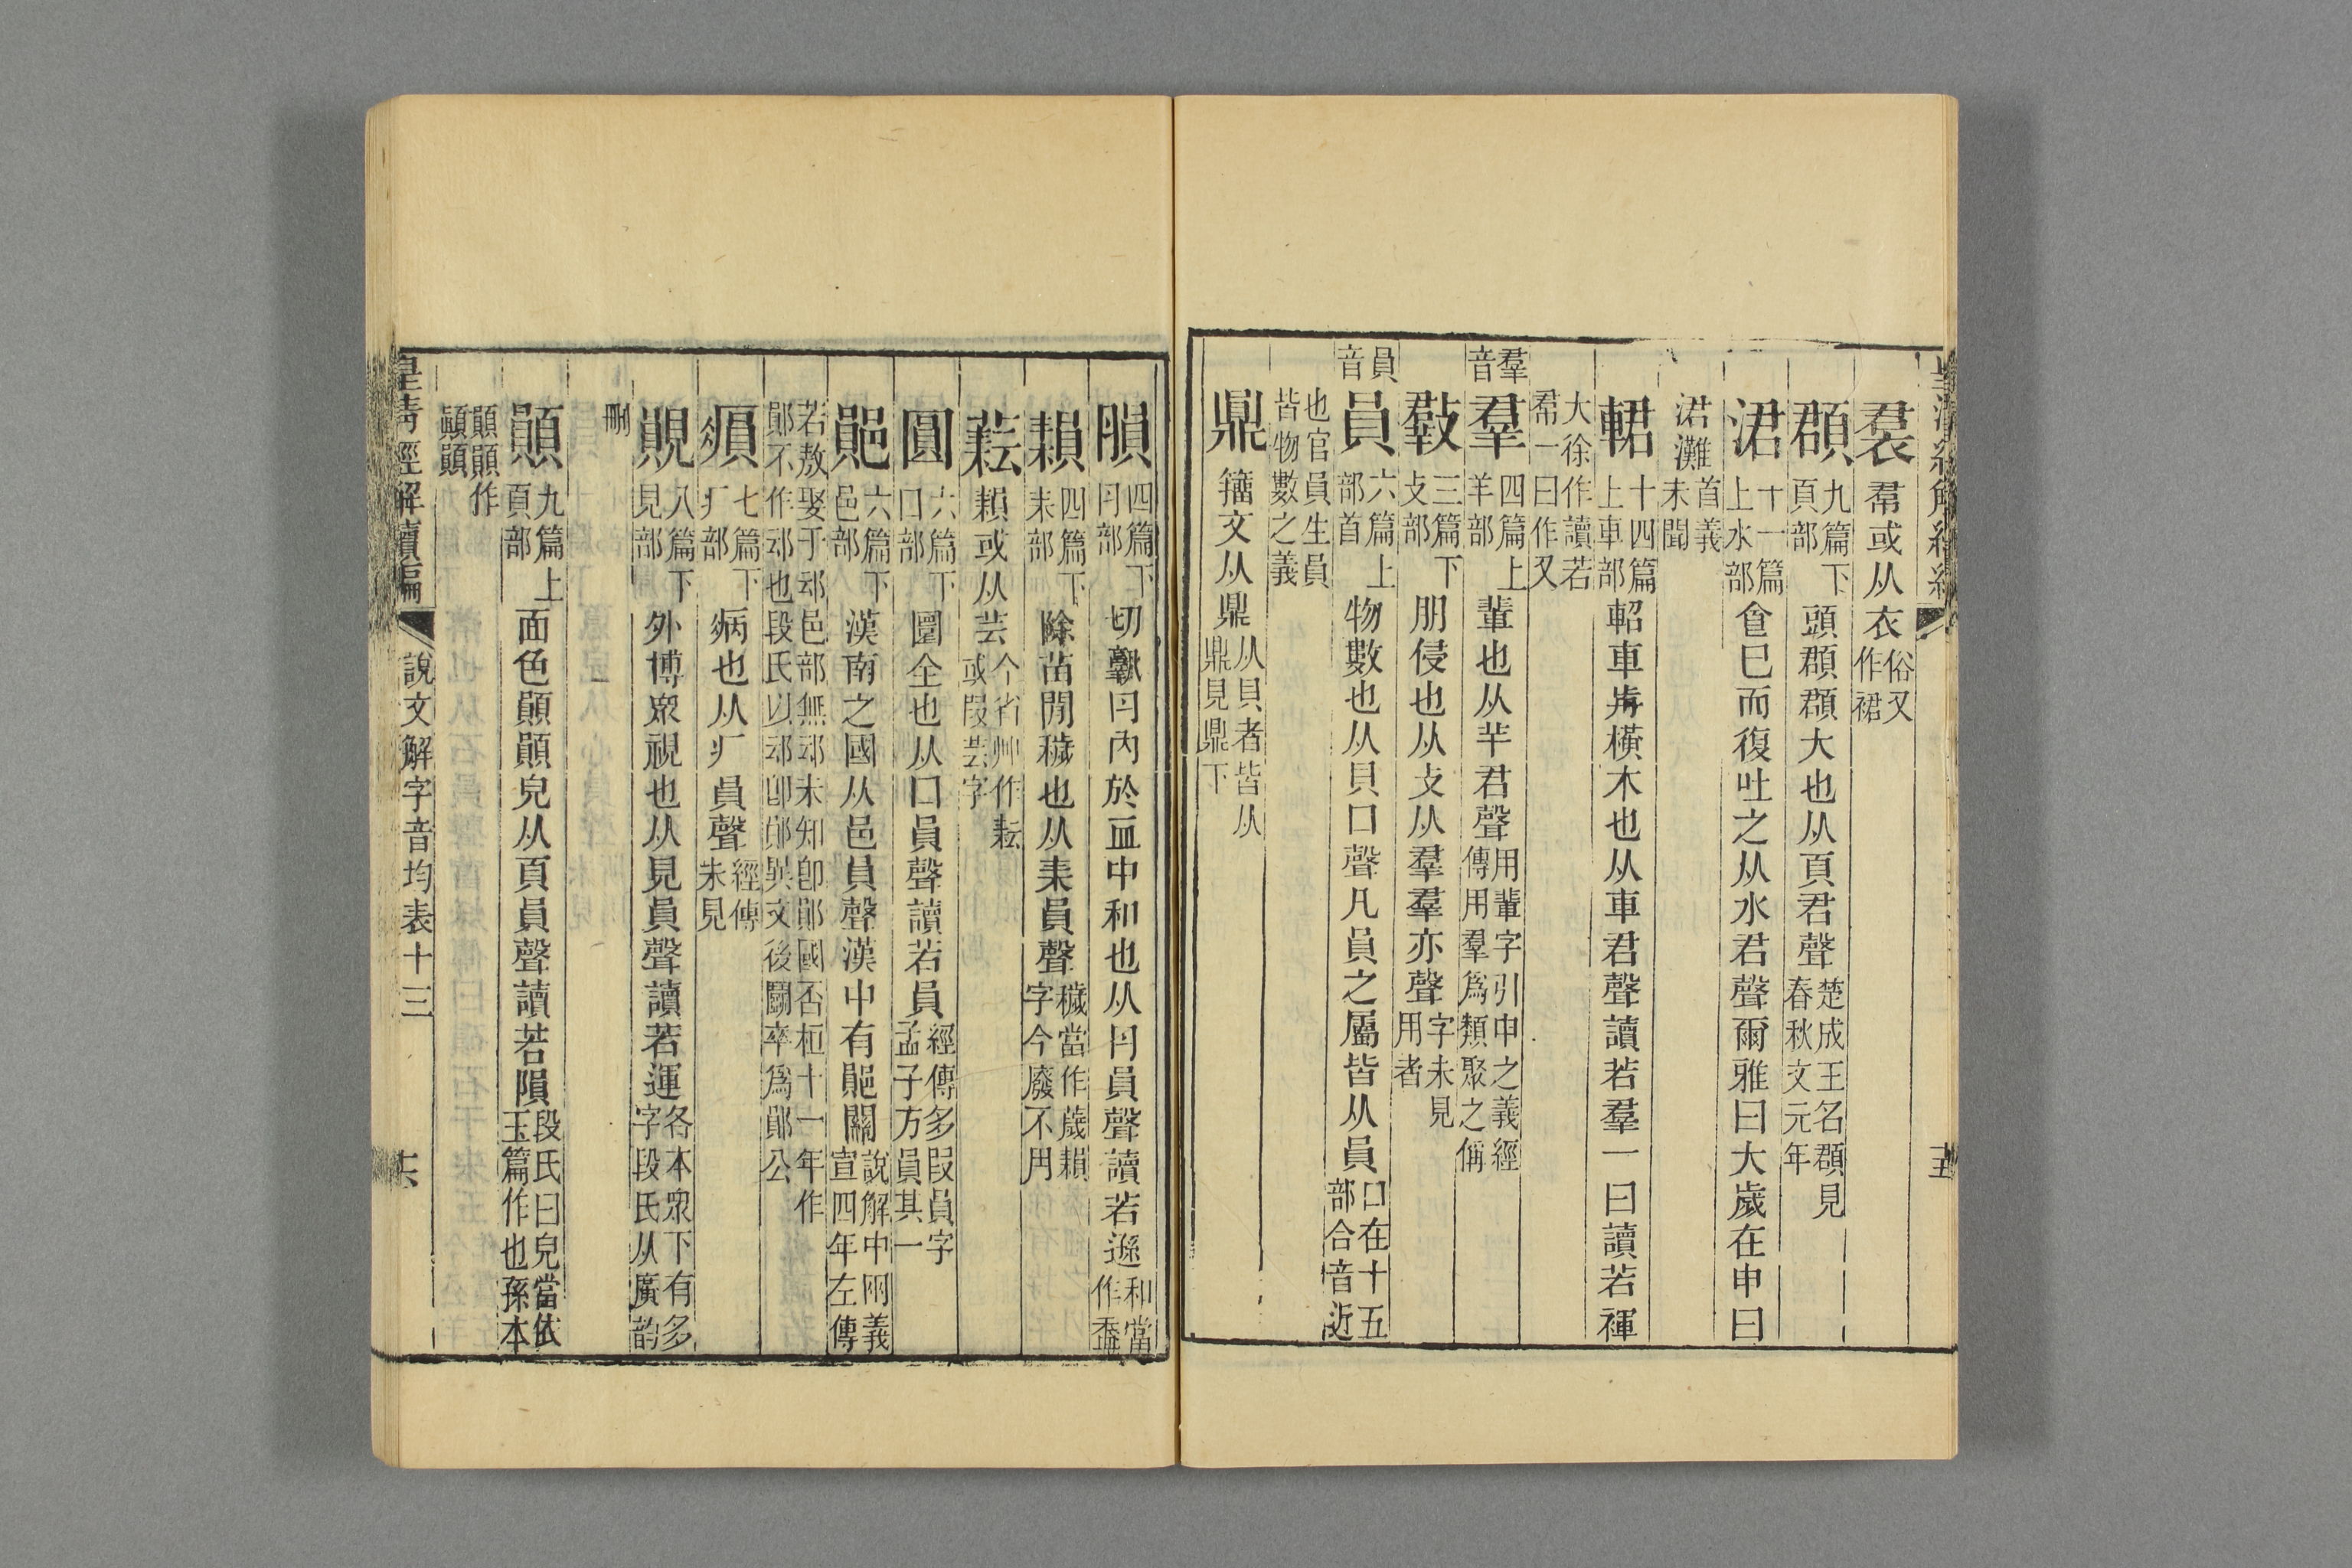 裠帬或从衣俗又作裙
頵九篇下頁部頭頵頵大也从頁君聲楚成王名頵見春秋文元年
涒十一篇上水部食已而復吐之从水君聲爾雅曰大歲在申曰
涒灘首義未聞
輑十四篇上車部軺車歬橫木也从車君聲讀若羣一曰讀若褌
大徐作讀若帬一曰作又
羣音
羣四篇上羊部輩也从羊君聲用輩字引申之義經傳用羣爲類聚之偁
㪊三篇下攴部朋侵也从攴从羣羣亦聲字未見用者
員音
員六篇上部首物數也从貝口聲凡員之屬皆从員口在十五部合音近
也官員生員皆物數之義
鼎籒文从鼎从貝者皆从鼎見鼎下
䏰四篇下肉部切孰肉內於血中和也从肉員聲讀若遜和當作盉
䎫四篇下耒部除苗閒穢也从耒員聲穢當作薉䎫字今廢不用
䎫或从芸今省艸作耘或叚芸字
圓六篇下囗部圜全也从囗員聲讀若員經傳多叚員字孟子方員其一
鄖六篇下邑部漢南之國从邑員聲漢中有鄖關說解中兩義宣四年左傳
若敖娶于䢵邑部無䢵未知卽鄖國否桓十一年作鄖不作䢵也段氏以䢵卽鄖異文後鬬卒爲鄖公
㾓七篇下疒部病也从疒員聲經傳未見
䚋八篇下見部外博衆視也从見員聲讀若運各本衆下有多字段氏从廣韵
刪
顚九篇上頁部面色顚顚皃从頁員聲讀若隕段氏曰皃當依玉篇作也孫本
顚顚作顚顚
皇清經解續編
說文解字音均表十三
十六